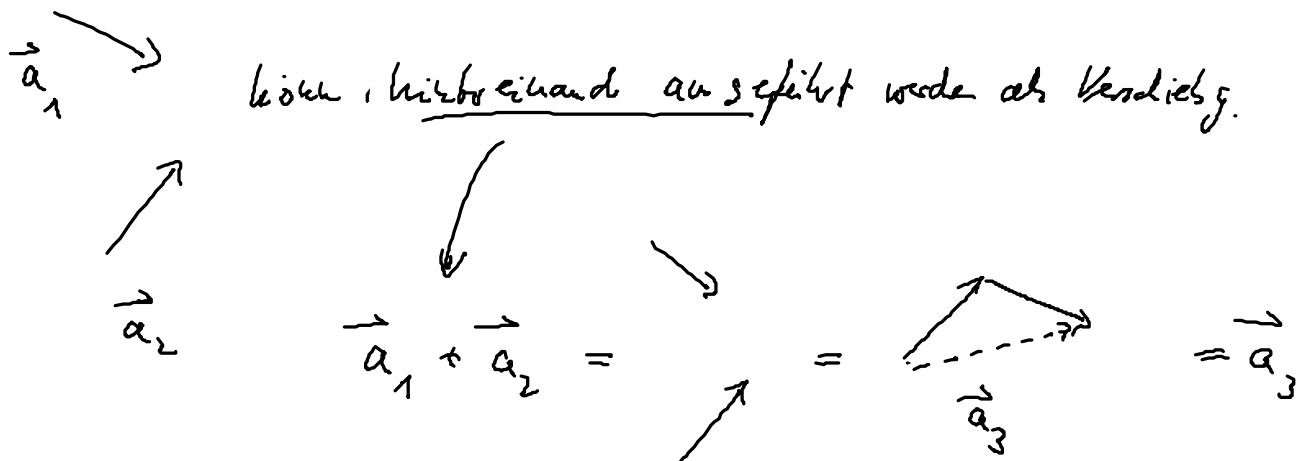 a⃗₁
könn. hintereinand ausgeführt werden als Verschiebg.
a⃗₂
a⃗₁ + a⃗₂ = = = a⃗₃
a⃗₃